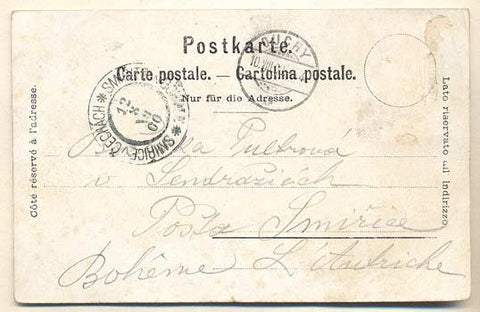 Postkarte.
Carte postale. — Cartolina postale.
Nur für die Adresse.
Côté réservé à l'adresse.
Lato riservato all' Indirizzo
OUCHY
SMIŘICE V ČECHÁCH
v Sendražicích
Pošta Smiřice
Bohême L'Autriche